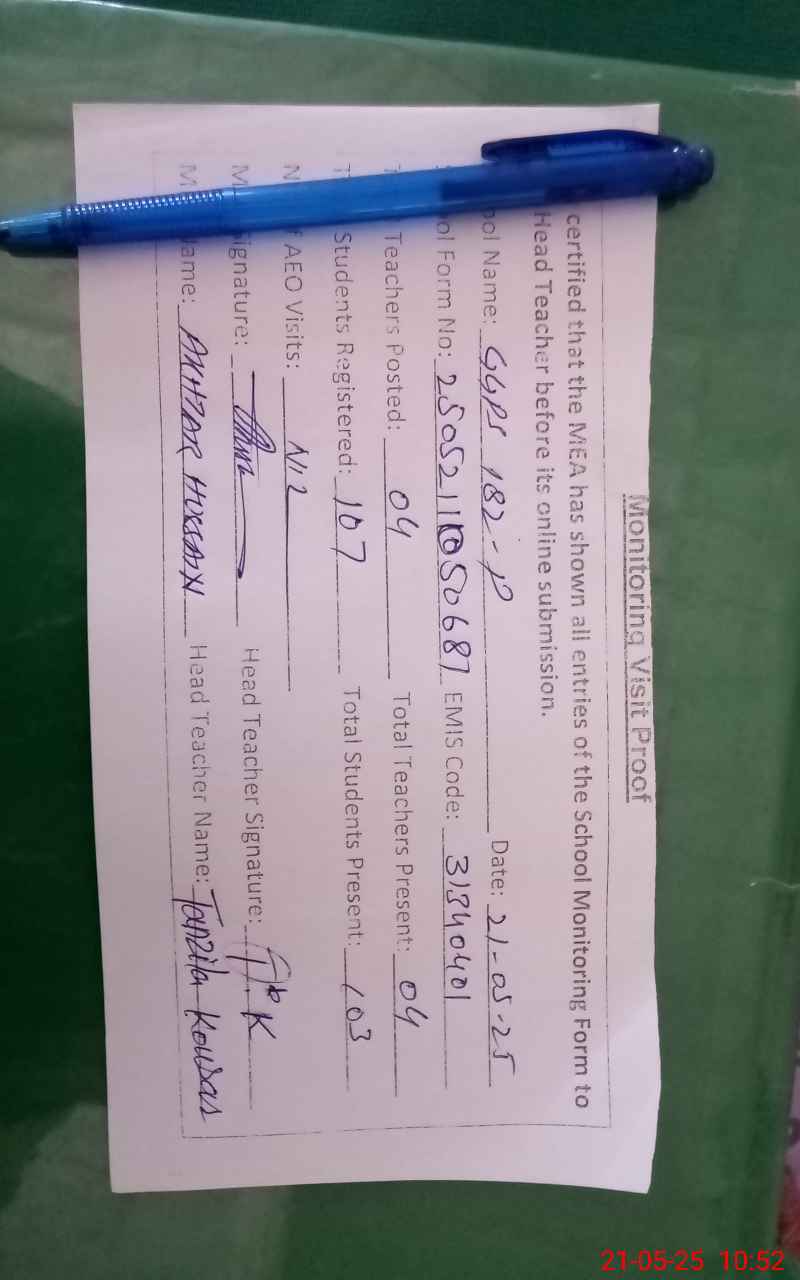 Monitoring Visit Proof
certified that the MEA has shown all entries of the School Monitoring Form to
Head Teacher before its online submission.
ool Name: GGPS 182-P Date: 21-05-25
ol Form No: EMIS Code: 31340401
Teachers Posted: 04 Total Teachers Present: 04
Students Registered: 107 Total Students Present: 103
AEO Visits: Nil
ignature: Head Teacher Signature: K
ame: AKHTAR HUSSAIN Head Teacher Name: Tanzila Kousar
21-05-25 10:52